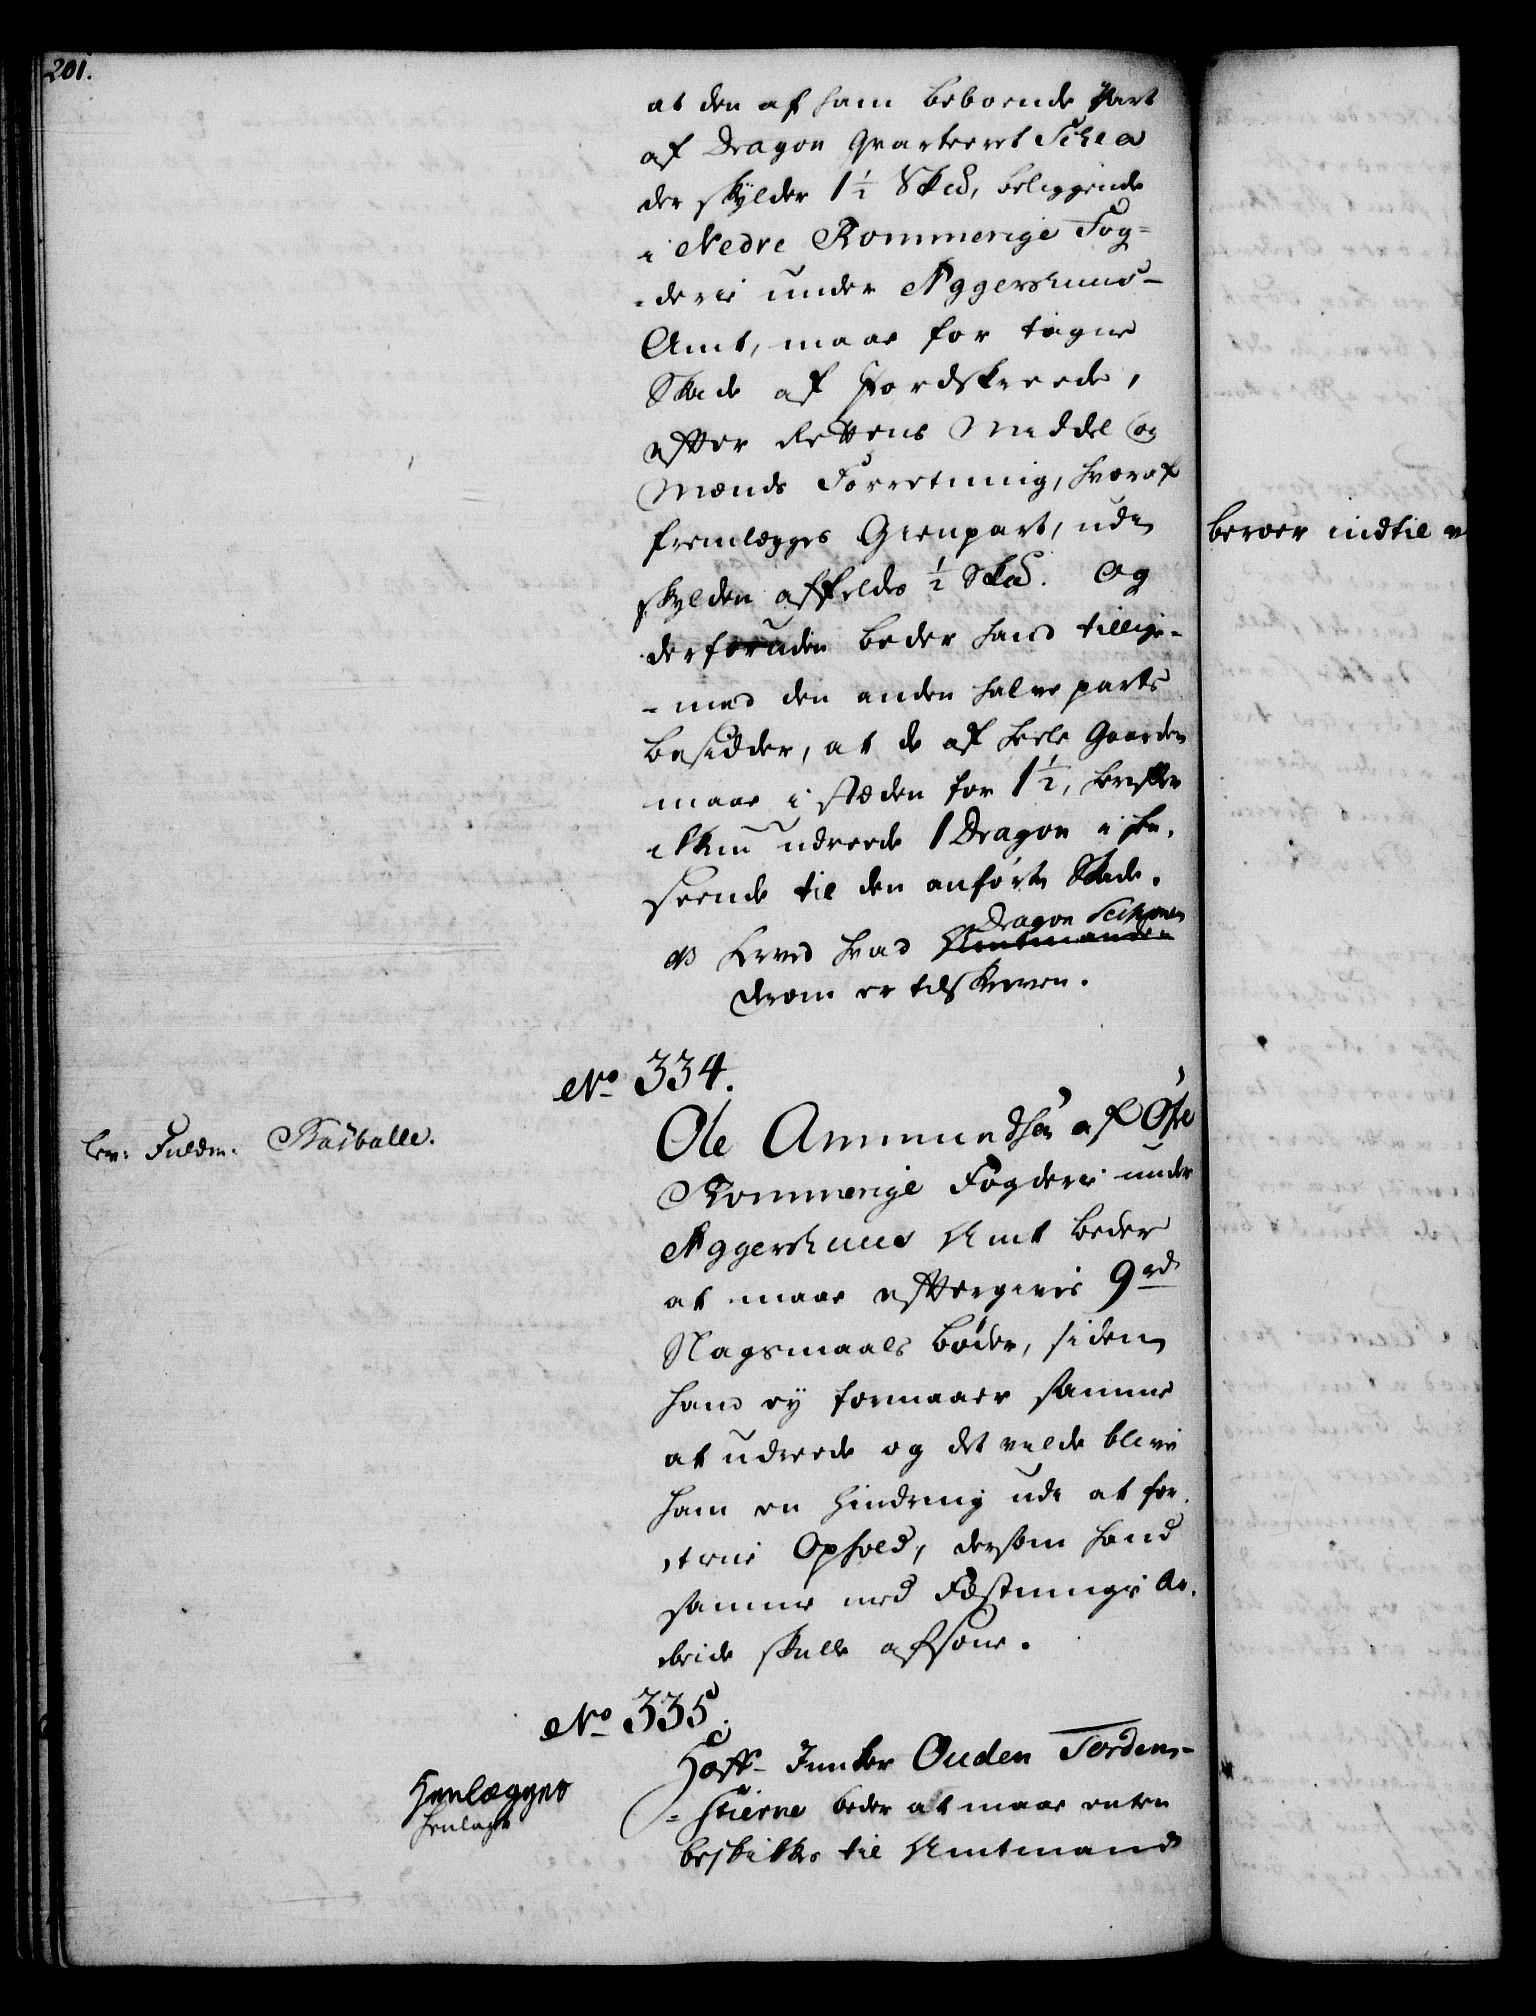 201.
at den af ham beboende Part
af Dragon Qvarteret Schea
der skylder 1½ Skd, beliggende
i Nedre Rommerige Fog=
=derie under Aggershuus-
Amt, maae for tagne
Skade af Jordskreede,
efter Rettens Middel og
Mænds Forretning, hvoraf
fremlægges Gienpart, udi
skylden affældes ½ Skd. Og
derforuden beder hand tillige-
-med den anden halve parts
besidder, at de af heele Gaarden
maae i stæden for 1½, herefter
ikkun udreede 1 Dragon i hen,
seende til den anførte Skade.
NB hved hvad Amtmanden
Dragon
derom er tilskreven.
No 334.
lev: Fuldm. Basballe.
Ole Ammundsen af Øfre
Rommerige Fogderie under
Aggershuus Amt beder
at maae eftergives 9 rd
Slagsmaals bøder, siden
hand ey formaaer samme
at udreede og det vilde blive
ham en Hindring udi at for,
tiene Ophold, dersom hand
samme med Fæstnings Ar,
beide skulle afsone.
No 335.
Henlægges
henlagt
Hoff- Junker Ouden Tordens-
=stierne beder at maae enten
beskikkes til Amtmand
beroer indtil